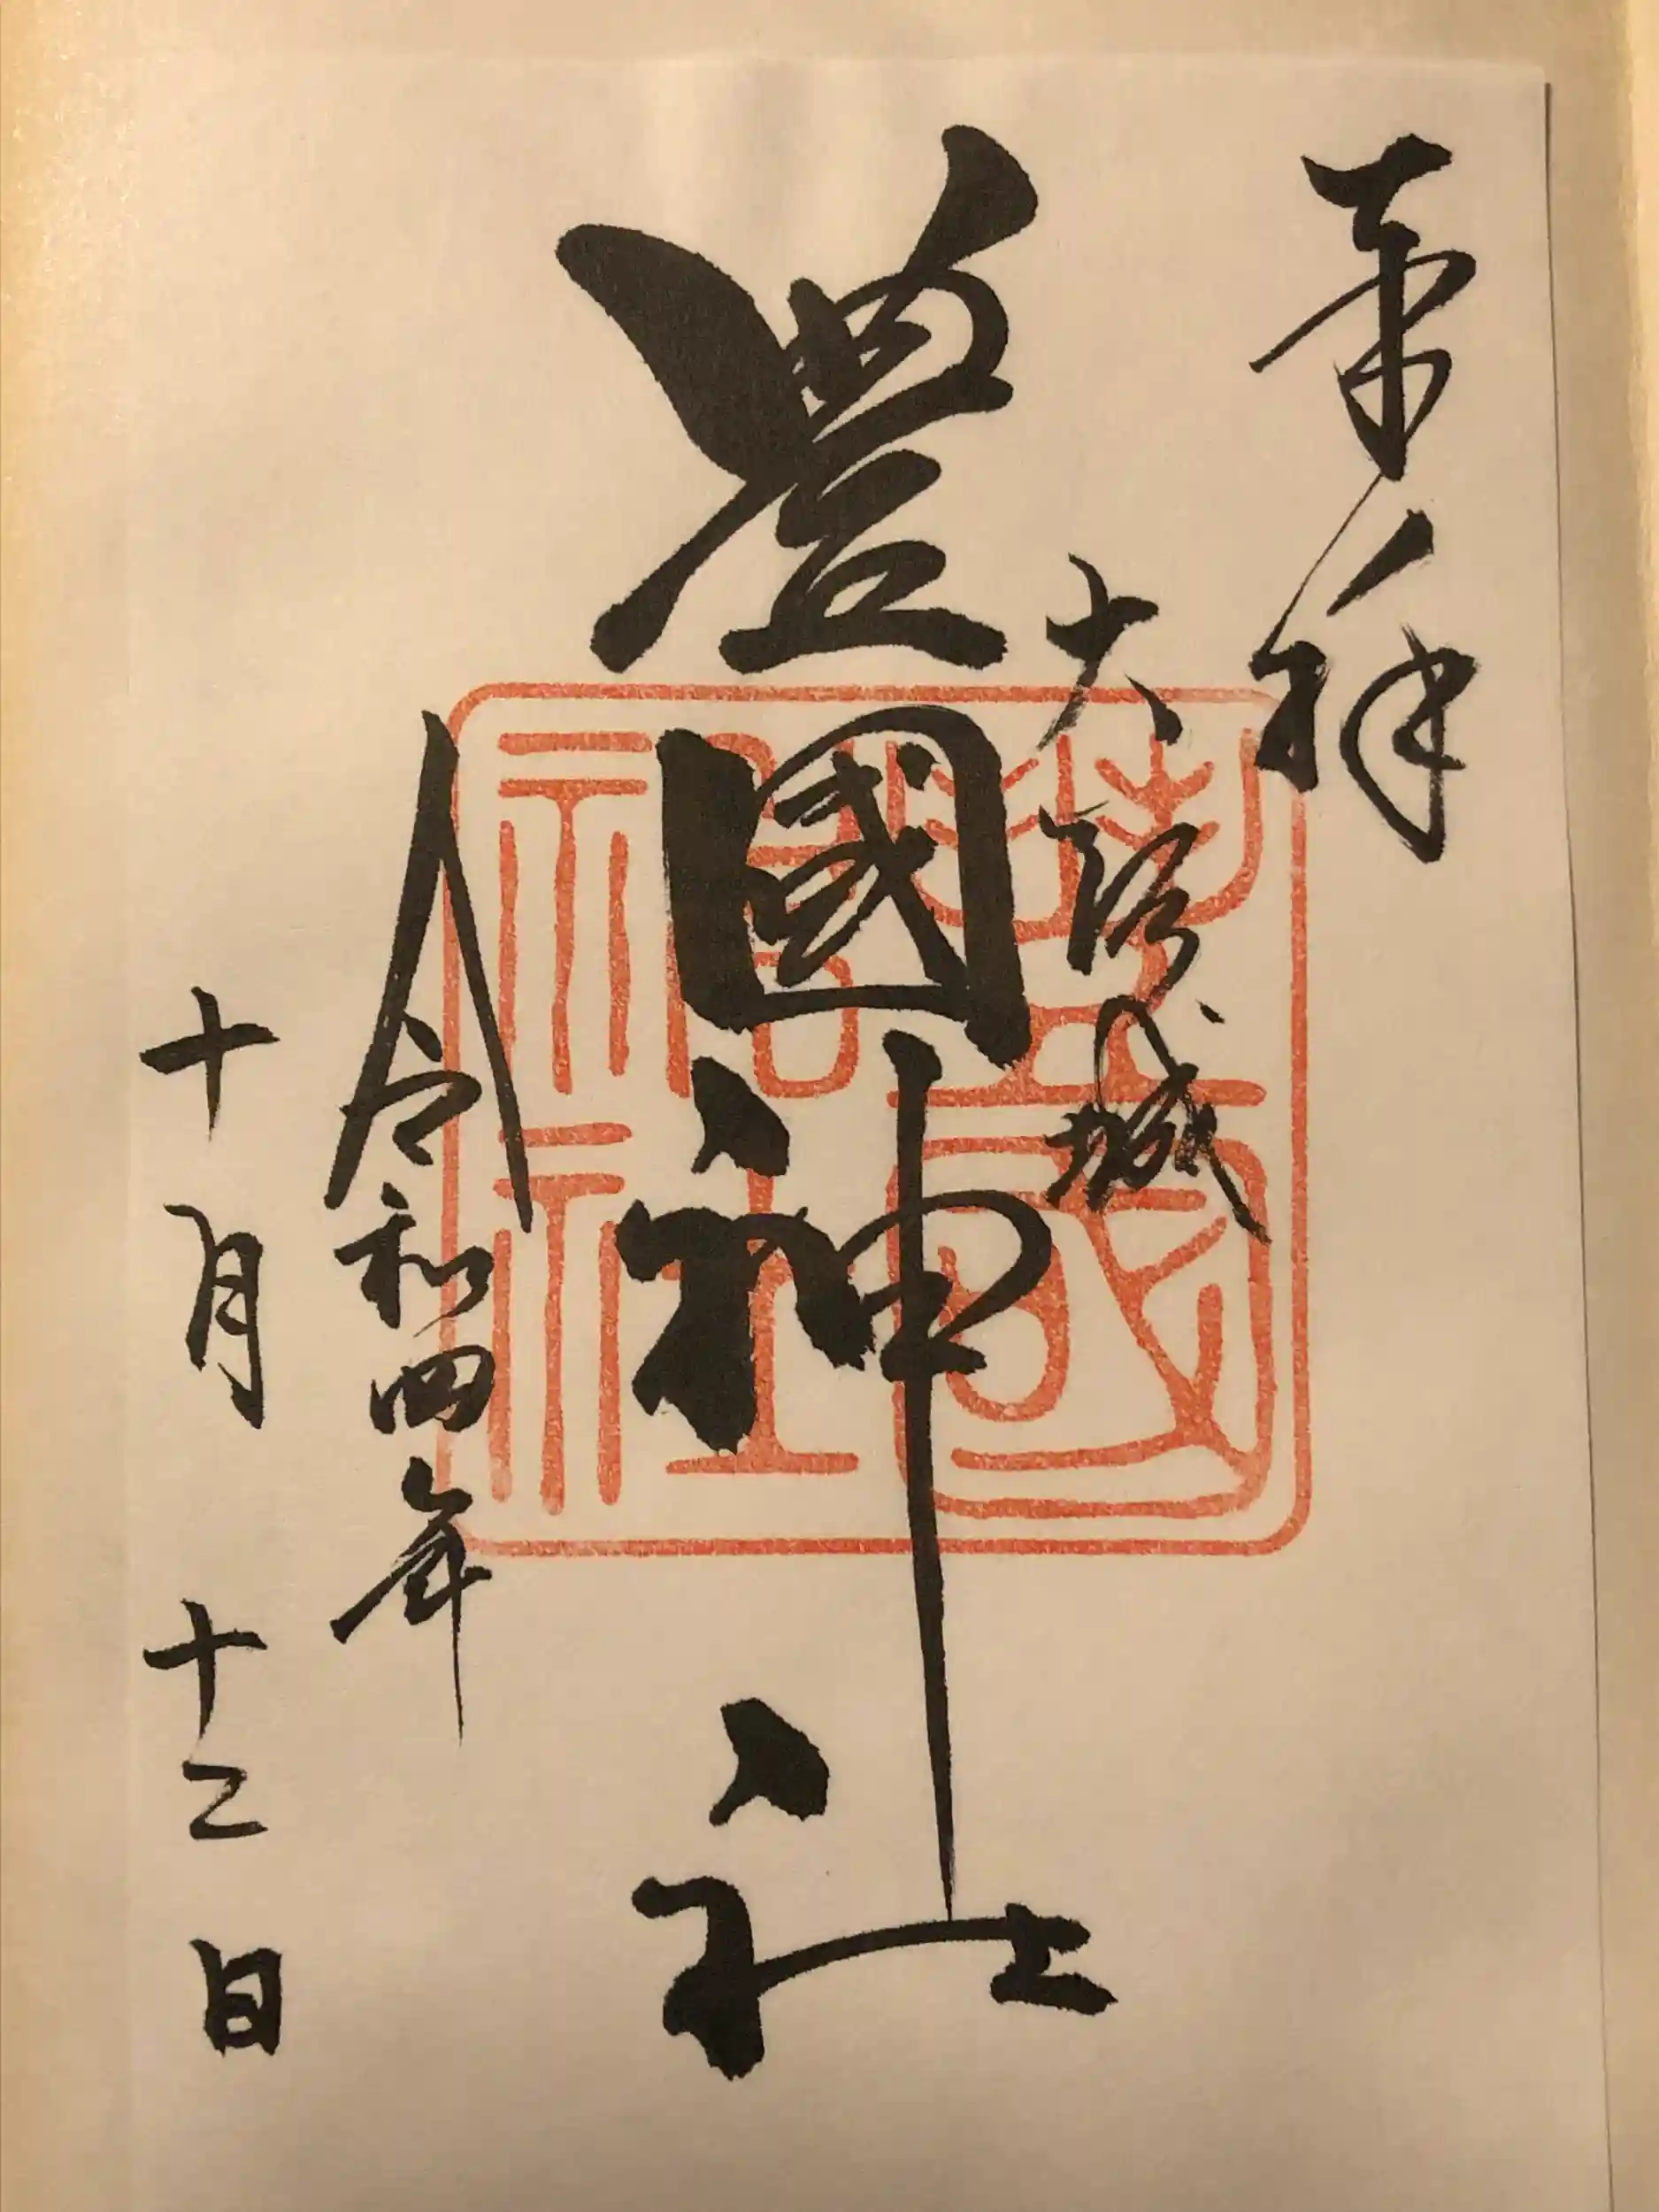 奉拝
大阪城
豊國神社
令和四年
十月十二日
豊國
神社